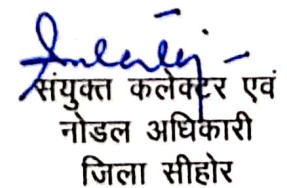 संयुक्त कलेक्टर एवं
नोडल अधिकारी
जिला सीहोर